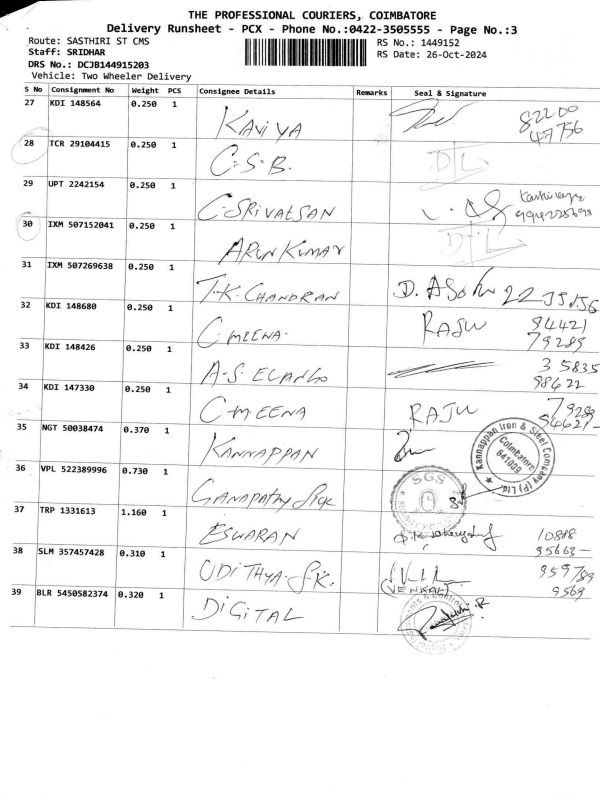 THE PROFESSIONAL COURIERS, COIMBATORE
Delivery Runsheet - PCX - Phone No.:0422-3505555 - Page No.:3
Route: SASTHIRI ST CMS RS No.: 1449152
Staff: SRIDHAR RS Date: 26-Oct-2024
DRS No.: DCJB144915203
Vehicle: Two Wheeler Delivery
S No Consignment No Weight PCS Consignee Details Remarks Seal & Signature
27 KDI 148564 0.250 1 KAVIYA 82200
47756
28 TCR 29104415 0.250 1 C.S.B. D L
29 UPT 2242154 0.250 1 C.SRIVATSAN
30 IXM 507152041 0.250 1 ARUN KUMAR D L
31 IXM 507269638 0.250 1 T.K. CHANDRAN
32 KDI 148680 0.250 1 C.MEENA. RAJU 94421
79289
33 KDI 148426 0.250 1 A.S. ELANGO 35835
98422
34 KDI 147330 0.250 1 C.MEENA RAJU 79289
35 NGT 50038474 0.370 1 KANNAPPAN
Kannappan Iron & Steel Company (P) Ltd.
Coimbatore
641009
36 VPL 522389996 0.730 1 GANAPATHY
SGS
37 TRP 1331613 1.160 1 ESWARAN 10888
95663-
38 SLM 357457428 0.310 1 UDITHYA S.K. 959789
(VENKAT) 9569
39 BLR 5450582374 0.320 1 DIGITAL